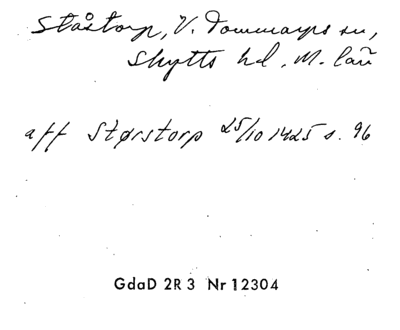 Ståstorp, V. Tommarps sn,
Skytts hd, M. län
aff Størstorp 25/10 1425 s. 96
GdaD 2R3 Nr 12304